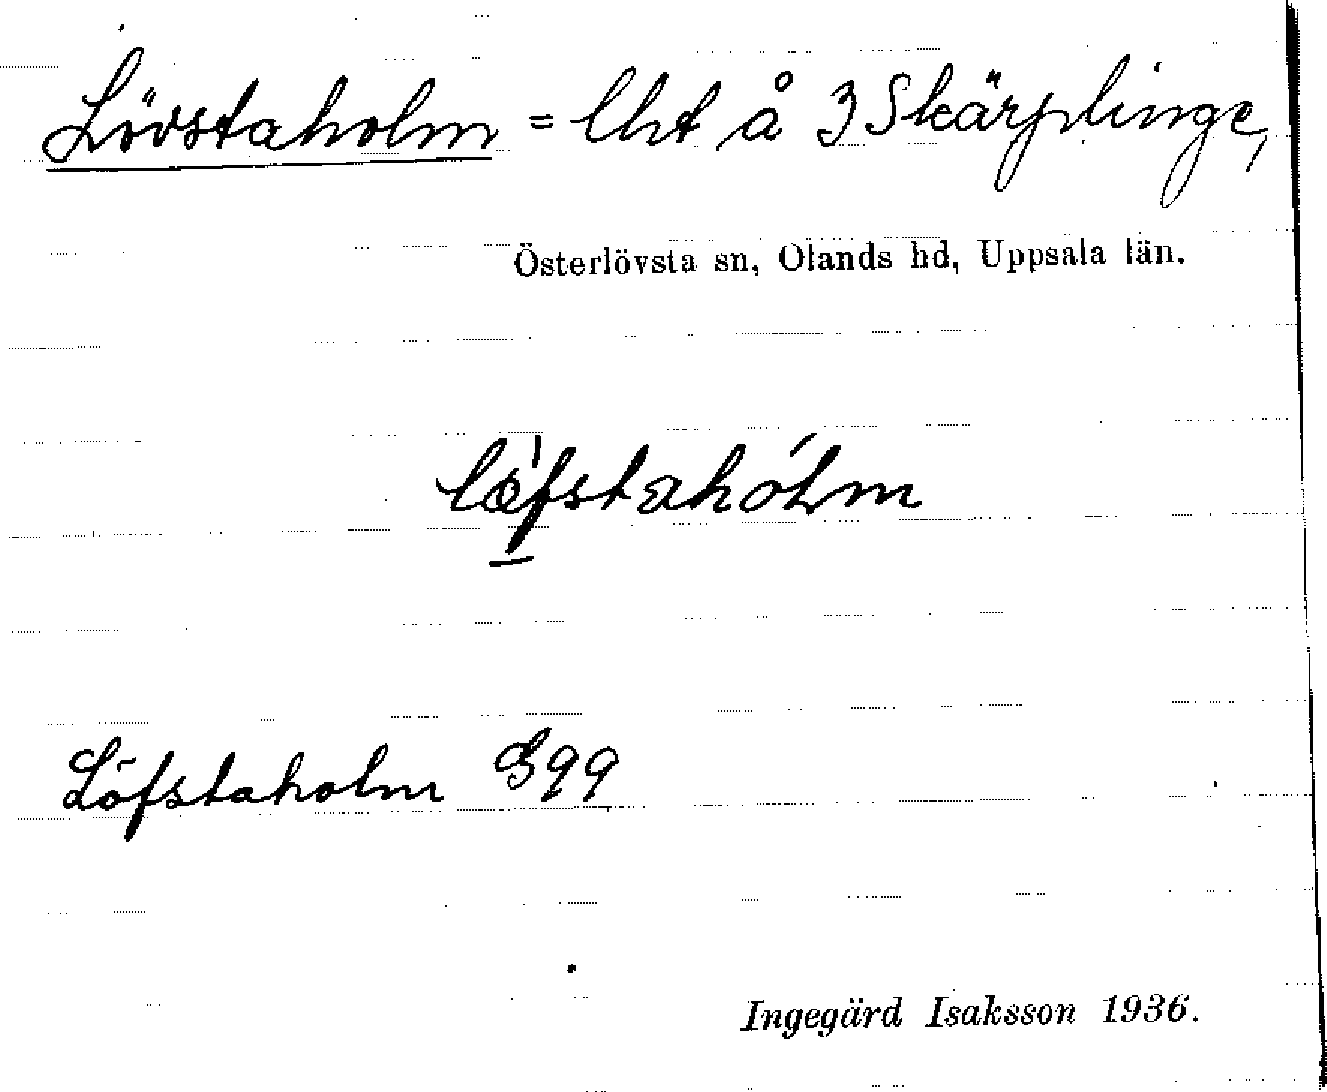 Lövstaholm = lht å 3 Skärplinge,
Österlövsta sn, Olands hd, Uppsala län.
lœ̀fstahólm
Löfstaholm G99
Ingegärd Isaksson 1936.